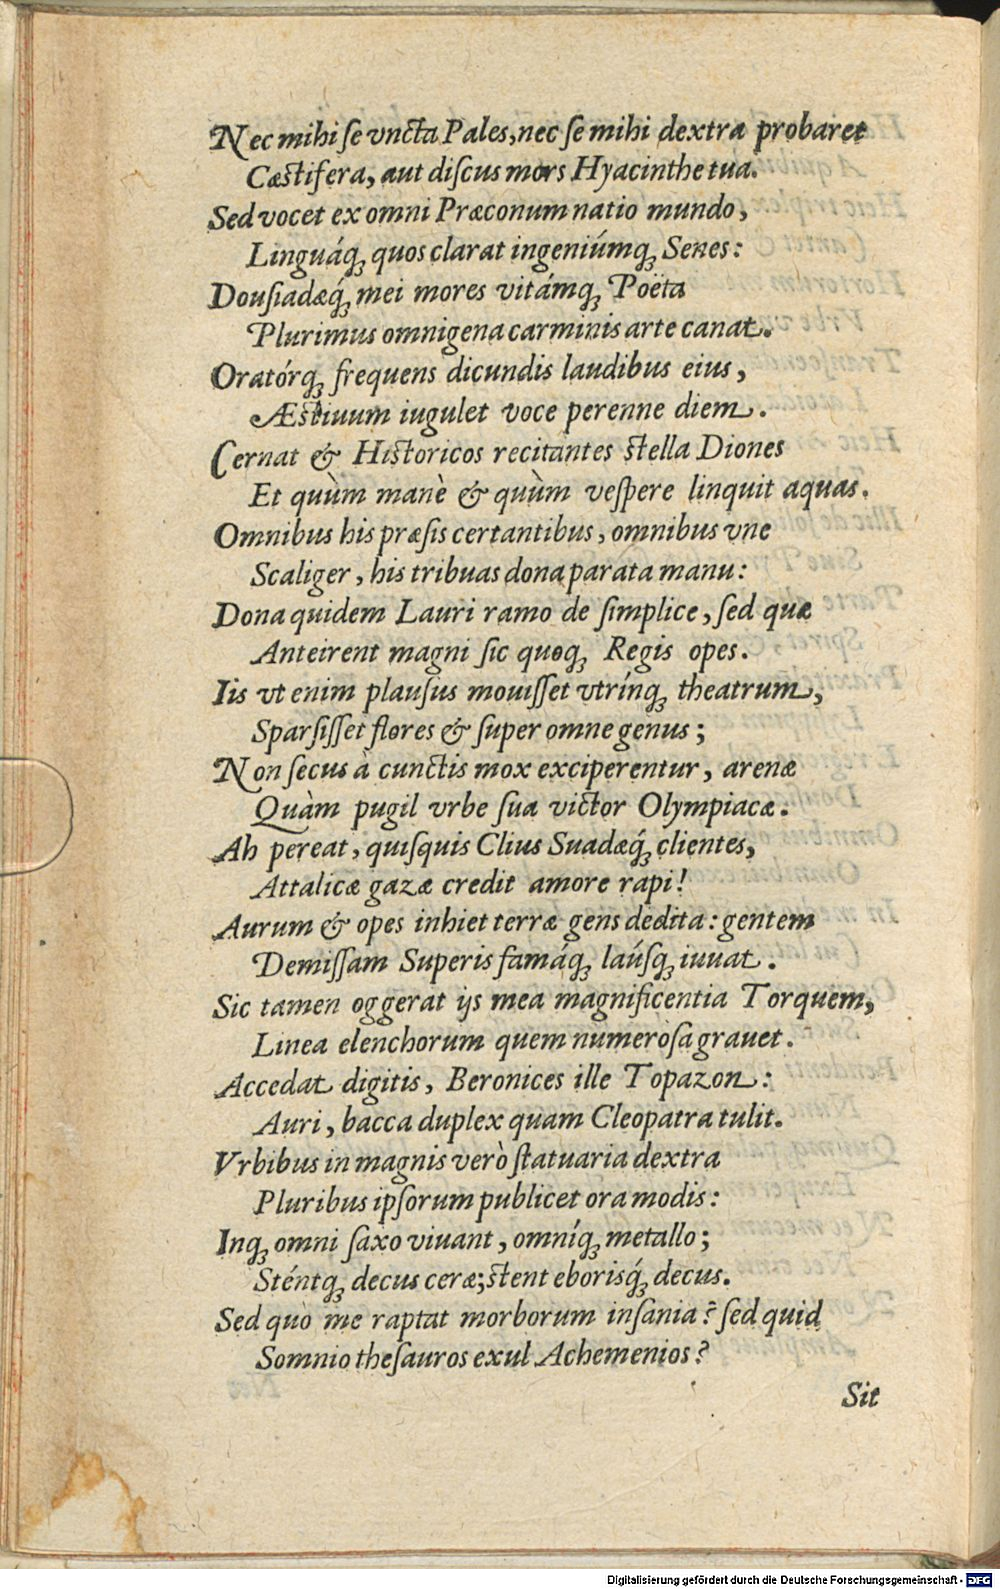 Nec mihi ſe vncta Pales, nec ſe mihi dextra probaret
Cæſtifera, aut diſcus mors Hyacinthe tua.
Sed vocet ex omni Præconum natio mundo,
Linguáq; quos clarat ingeniúmq; Senes:
Douſiadæq́; mei mores vitámq; Poëta
Plurimus omnigena carminis arte canat.
Oratórq; frequens dicundis laudibus eius,
Æſtiuum iugulet voce perenne diem.
Cernat & Hiſtoricos recitantes ſtella Diones
Et quùm manè & quùm veſpere linquit aquas.
Omnibus his præſis certantibus, omnibus vne
Scaliger, his tribuas dona parata manu:
Dona quidem Lauri ramo de ſimplice, ſed quæ
Anteirent magni ſic quoq; Regis opes.
Iis vt enim plauſus mouiſſet vtrínq; theatrum,
Sparſiſſet flores & ſuper omne genus;
Non ſecus à cunctis mox exciperentur, arenæ
Quàm pugil vrbe ſua victor Olympiacæ.
Ah pereat, quiſquis Clius Suadæq́; clientes,
Attalicæ gazæ credit amore rapi!
Aurum & opes inhiet terræ gens dedita: gentem
Demiſſam Superis famáq; laúſq; iuuat.
Sic tamen oggerat ijs mea magnificentia Torquem,
Linea elenchorum quem numeròſa grauet.
Accedat digitis, Beronices ille Topazon:
Auri, bacca duplex quam Cleopatra tulit.
Vrbibus in magnis verò ſtatuaria dextra
Pluribus ipſorum publicet ora modis:
Inq; omni ſaxo viuant, omníq; metallo;
Sténtq; decus ceræ; ſtent eborisq́; decus.
Sed quò me raptat morborum inſania? ſed quid
Somnio theſauros exul Achemenios?
Sit
Digitalisierung gefördert durch die Deutsche Forschungsgemeinschaft - DFG